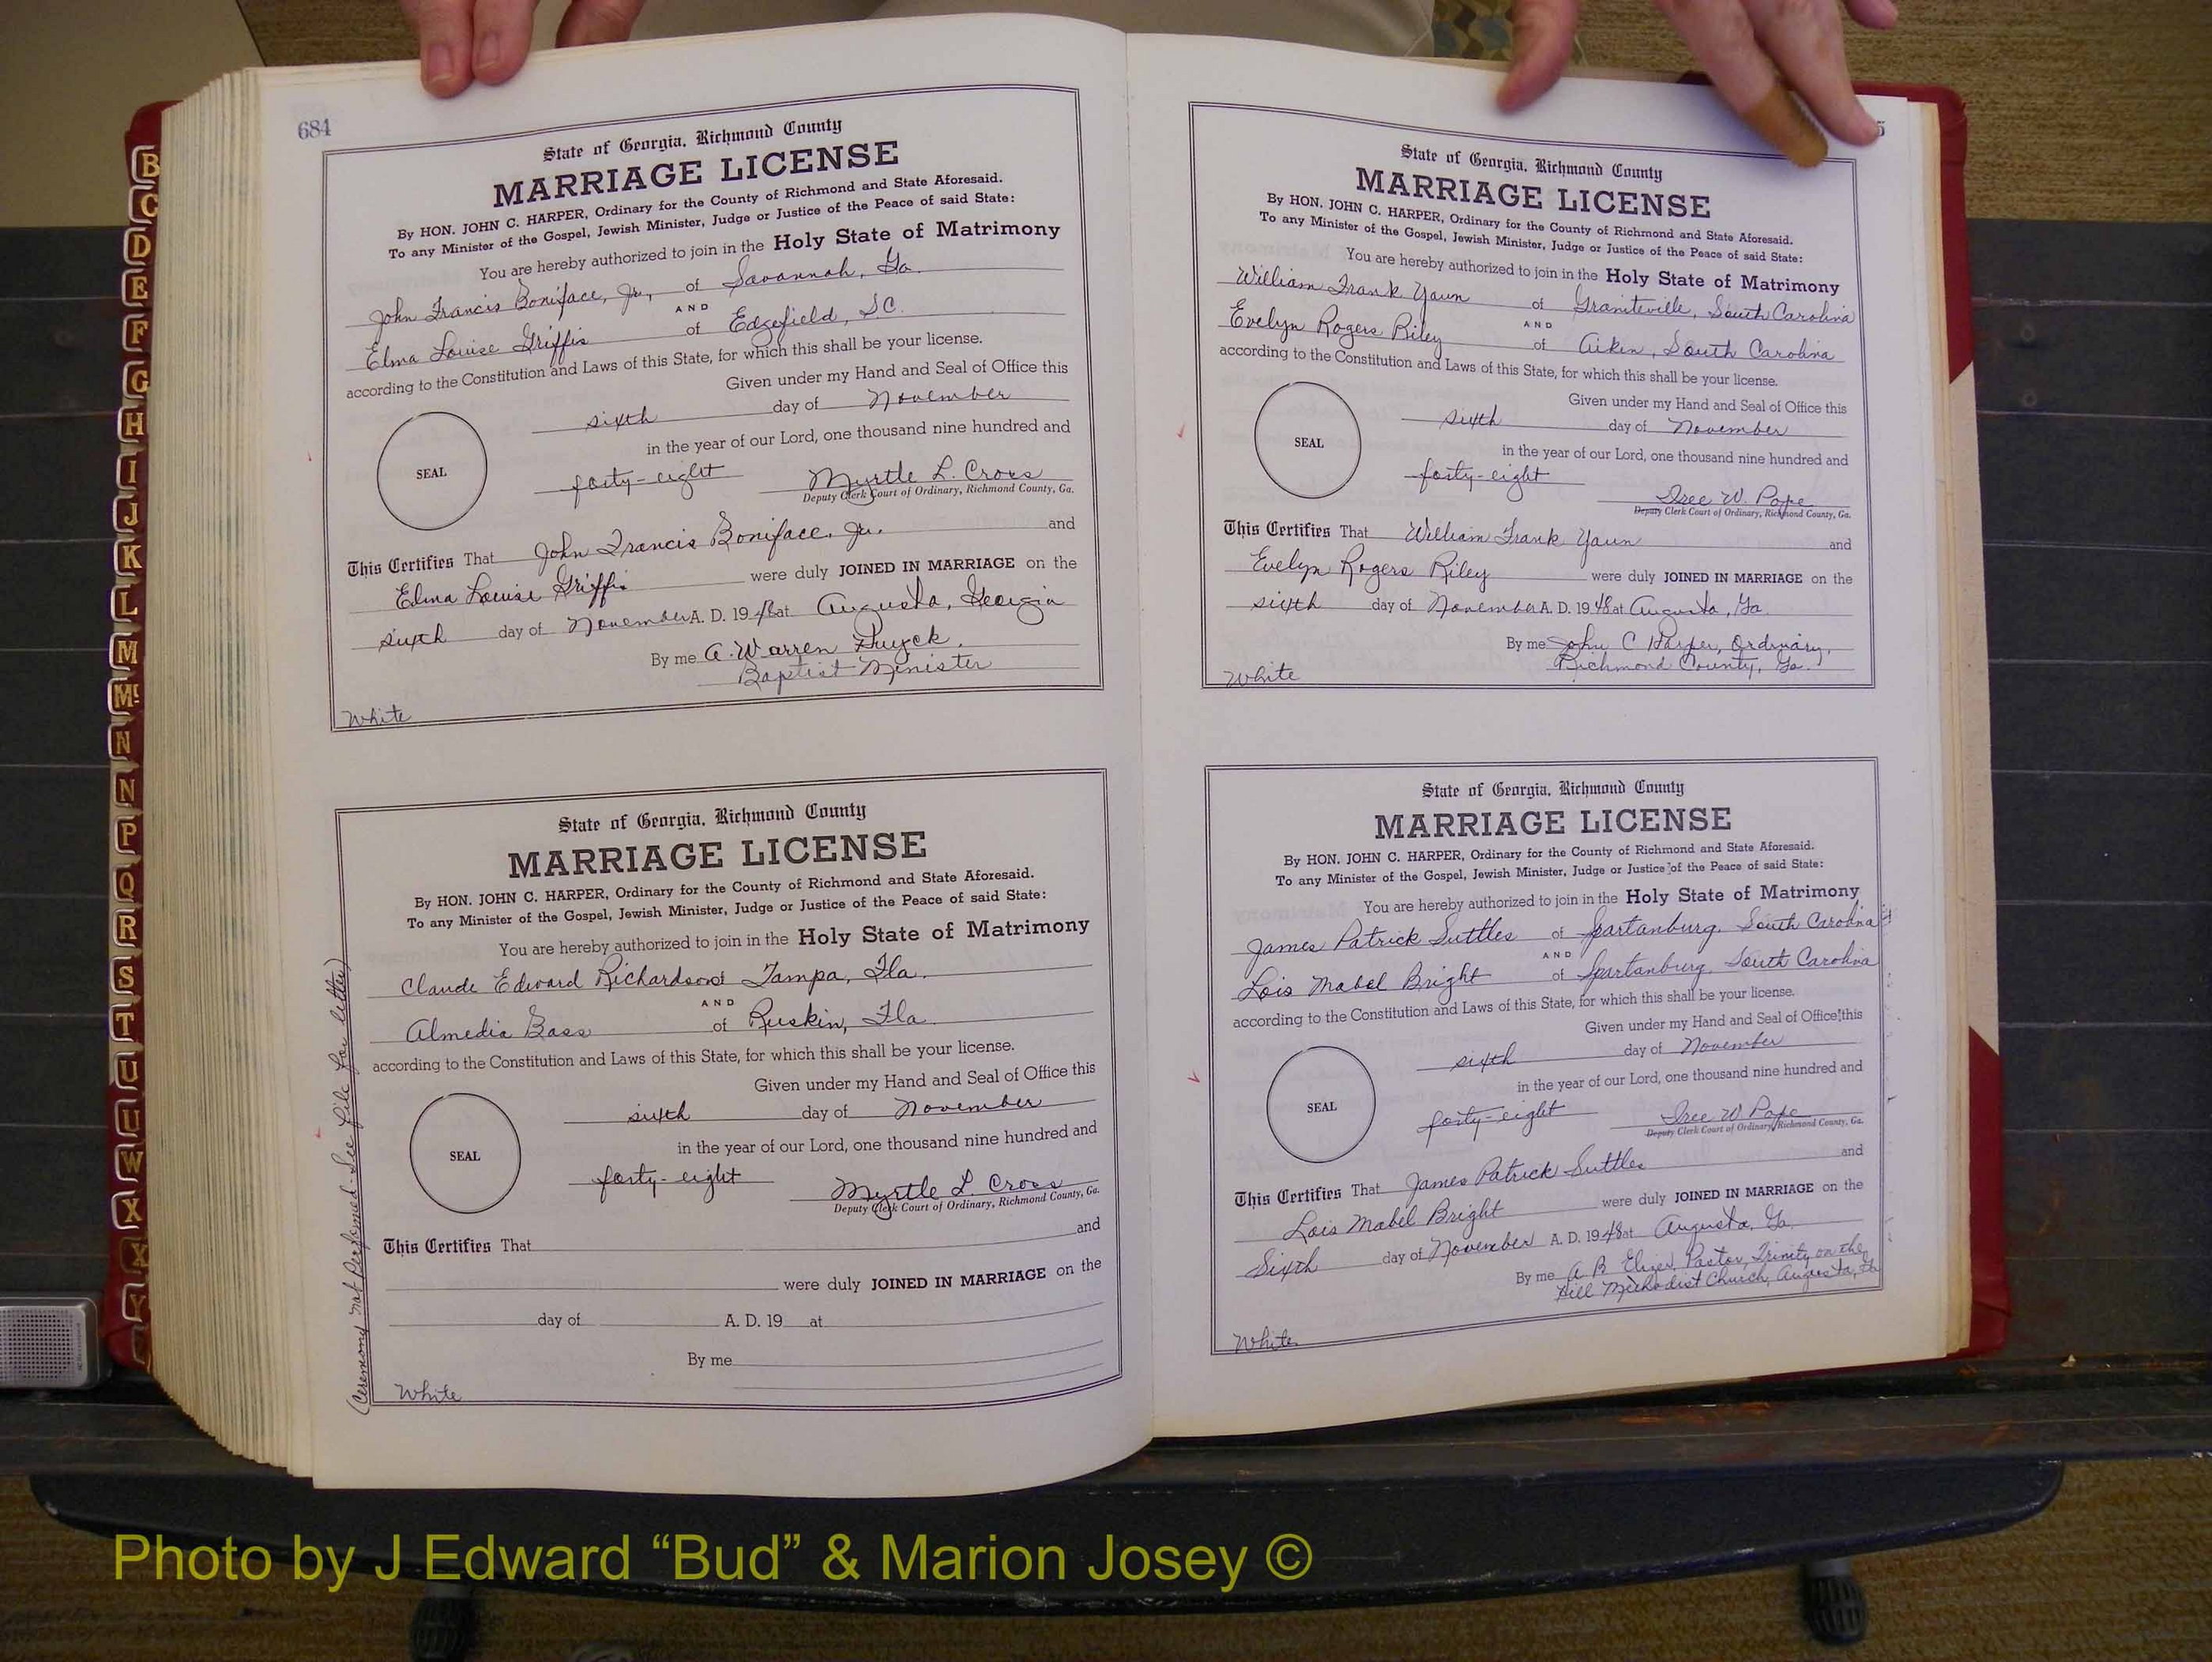 684
State of Georgia, Richmond County
MARRIAGE LICENSE
By HON. JOHN C. HARPER, Ordinary for the County of Richmond and State Aforesaid.
To any Minister of the Gospel, Jewish Minister, Judge or Justice of the Peace of said State:
You are hereby authorized to join in the Holy State of Matrimony
John Francis Boniface, Jr., of Savannah, Ga.
AND
Elma Louise Griffis of Edgefield, S.C.
according to the Constitution and Laws of this State, for which this shall be your license.
Given under my Hand and Seal of Office this
sixth day of November
in the year of our Lord, one thousand nine hundred and
SEAL
forty-eight Myrtle L. Cross
Deputy Clerk Court of Ordinary, Richmond County, Ga.
This Certifies That John Francis Boniface, Jr. and
Elma Louise Griffis were duly JOINED IN MARRIAGE on the
sixth day of November A. D. 1948 at Augusta, Georgia
By me A. Warren Huyck,
Baptist Minister
White
State of Georgia, Richmond County
MARRIAGE LICENSE
By HON. JOHN C. HARPER, Ordinary for the County of Richmond and State Aforesaid.
To any Minister of the Gospel, Jewish Minister, Judge or Justice of the Peace of said State:
You are hereby authorized to join in the Holy State of Matrimony
Claude Edward Richardson of Tampa, Fla.
AND
Almedia Bass of Ruskin, Fla.
according to the Constitution and Laws of this State, for which this shall be your license.
Given under my Hand and Seal of Office this
sixth day of November
in the year of our Lord, one thousand nine hundred and
SEAL
forty-eight Myrtle L. Cross
Deputy Clerk Court of Ordinary, Richmond County, Ga.
This Certifies That and
were duly JOINED IN MARRIAGE on the
day of A. D. 19 at
By me
White
(Ceremony not Performed - See file for letter)
5
State of Georgia, Richmond County
MARRIAGE LICENSE
By HON. JOHN C. HARPER, Ordinary for the County of Richmond and State Aforesaid.
To any Minister of the Gospel, Jewish Minister, Judge or Justice of the Peace of said State:
You are hereby authorized to join in the Holy State of Matrimony
William Frank Yaun of Graniteville, South Carolina
AND
Evelyn Rogers Riley of Aiken, South Carolina
according to the Constitution and Laws of this State, for which this shall be your license.
Given under my Hand and Seal of Office this
sixth day of November
SEAL
in the year of our Lord, one thousand nine hundred and
forty-eight Iree W. Pope
Deputy Clerk Court of Ordinary, Richmond County, Ga.
This Certifies That William Frank Yaun and
Evelyn Rogers Riley were duly JOINED IN MARRIAGE on the
sixth day of November A. D. 1948 at Augusta, Ga.
By me John C Harper, Ordinary,
Richmond County, Ga.
White
State of Georgia, Richmond County
MARRIAGE LICENSE
By HON. JOHN C. HARPER, Ordinary for the County of Richmond and State Aforesaid.
To any Minister of the Gospel, Jewish Minister, Judge or Justice of the Peace of said State:
You are hereby authorized to join in the Holy State of Matrimony
James Patrick Suttles of Spartanburg, South Carolina
AND
Lois Mabel Bright of Spartanburg, South Carolina
according to the Constitution and Laws of this State, for which this shall be your license.
Given under my Hand and Seal of Office this
sixth day of November
in the year of our Lord, one thousand nine hundred and
SEAL
forty-eight Iree W Pope
Deputy Clerk Court of Ordinary, Richmond County, Ga.
This Certifies That James Patrick Suttles and
Lois Mabel Bright were duly JOINED IN MARRIAGE on the
Sixth day of November A. D. 1948 at Augusta, Ga.
By me A B Elizer, Pastor, Trinity on the
Hill Methodist Church, Augusta, Ga
White
B
C
D
E
F
G
H
I
J
K
L
M
Mc
N
N
P
Q
R
S
T
U
U
W
X
X
Y
Photo by J Edward “Bud” & Marion Josey ©